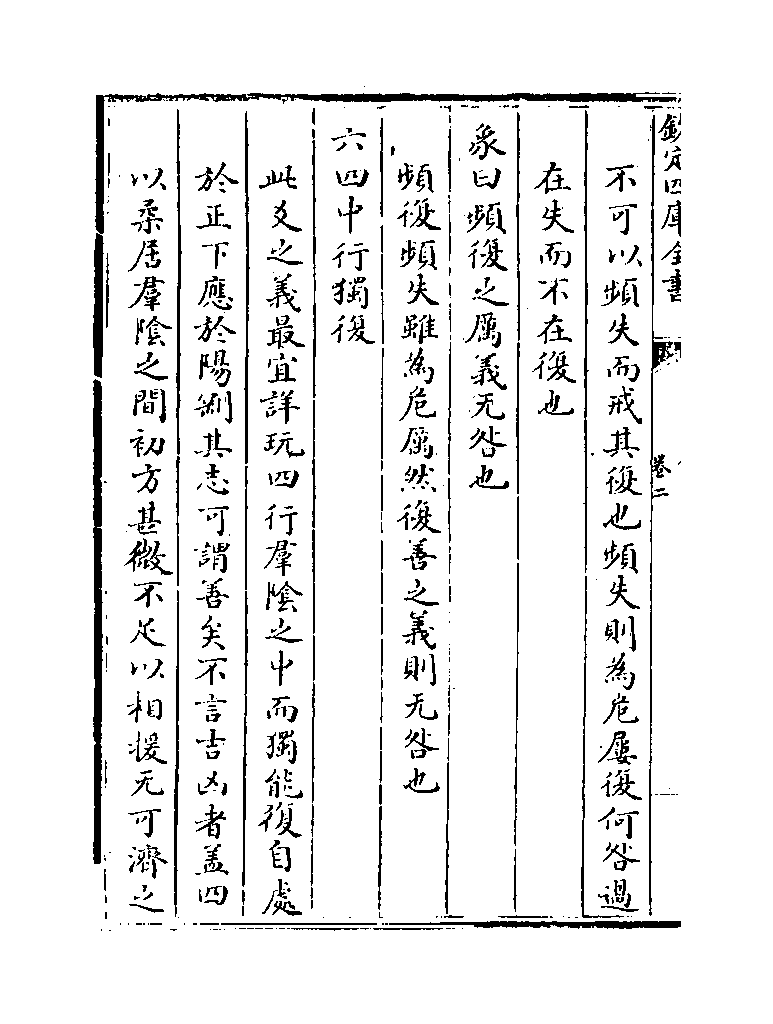 欽定四庫全書
卷二
不可以頻失而戒其復也頻失則為危屢復何咎過
在失而不在復也
象曰頻復之厲義无咎也
頻復頻失雖為危厲然復善之義則无咎也
六四中行獨復
此爻之義最宜詳玩四行羣陰之中而獨能復自處
於正下應於陽剛其志可謂善矣不言吉凶者盖四
以柔居羣陰之間初方甚微不足以相援无可濟之